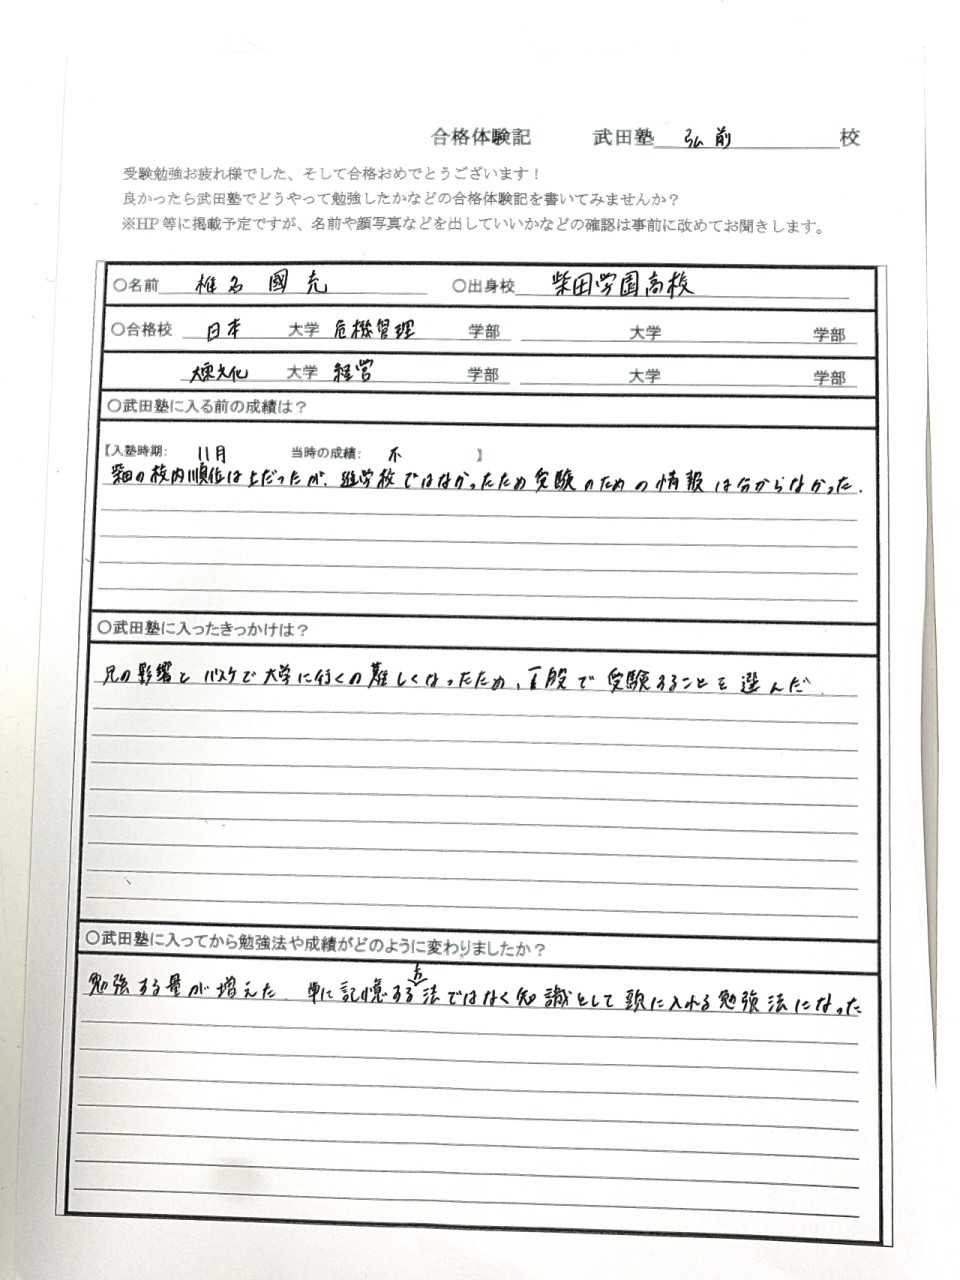 合格体験記 武田塾 弘前 校
受験勉強お疲れ様でした、そして合格おめでとうございます！
良かったら武田塾でどうやって勉強したかなどの合格体験記を書いてみませんか？
※HP等に掲載予定ですが、名前や顔写真などを出していいかなどの確認は事前に改めてお聞きします。
〇名前 椎名 國充 〇出身校 柴田学園高校
〇合格校 日本 大学 危機管理 学部 大学 学部
大東文化 大学 経営 学部 大学 学部
〇武田塾に入る前の成績は？
【入塾時期: 11月 当時の成績: 不 】
の校内順位は上だったが、進学校ではなかったため受験のための情報は分からなかった.
〇武田塾に入ったきっかけは？
兄の影響とバスケで大学に行くの難しくなったため、一般で受験することを選んだ.
〇武田塾に入ってから勉強法や成績がどのように変わりましたか？
勉強する量が増えた. 単に記憶する方法ではなく知識として頭に入れる勉強法になった